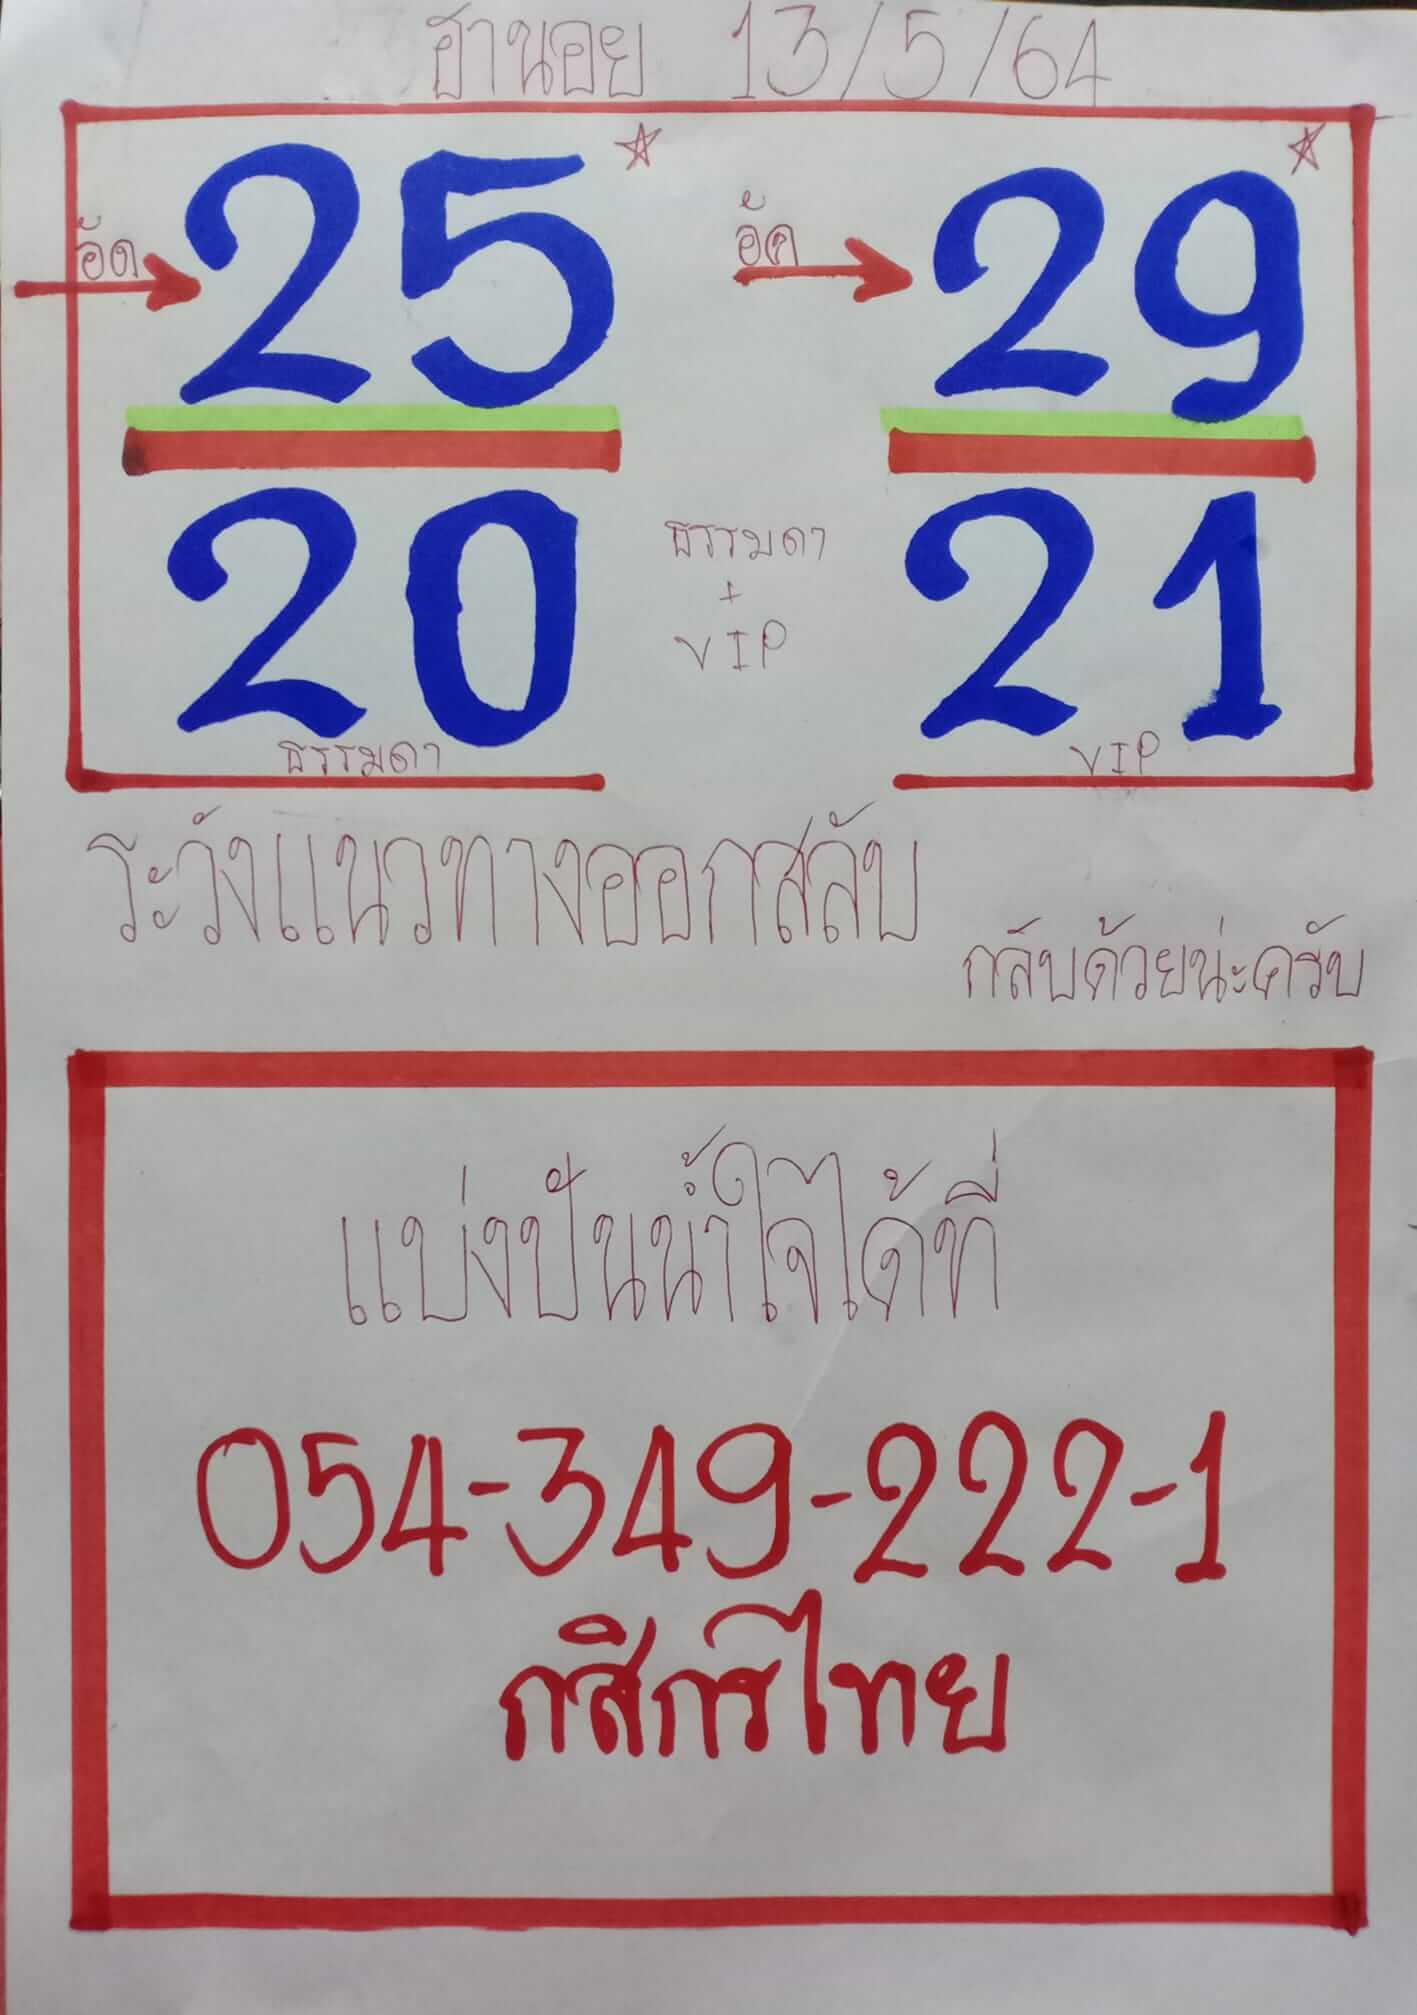 ฮานอย 13/5/64
อัด 25 อัด 29
20 ธรรมดา 21
+
VIP
ธรรมดา VIP
ระวังแนวทางออกสลับ
กลับด้วยน่ะครับ
แบ่งปันน้ำใจได้ที่
054-349-222-1
กสิกรไทย